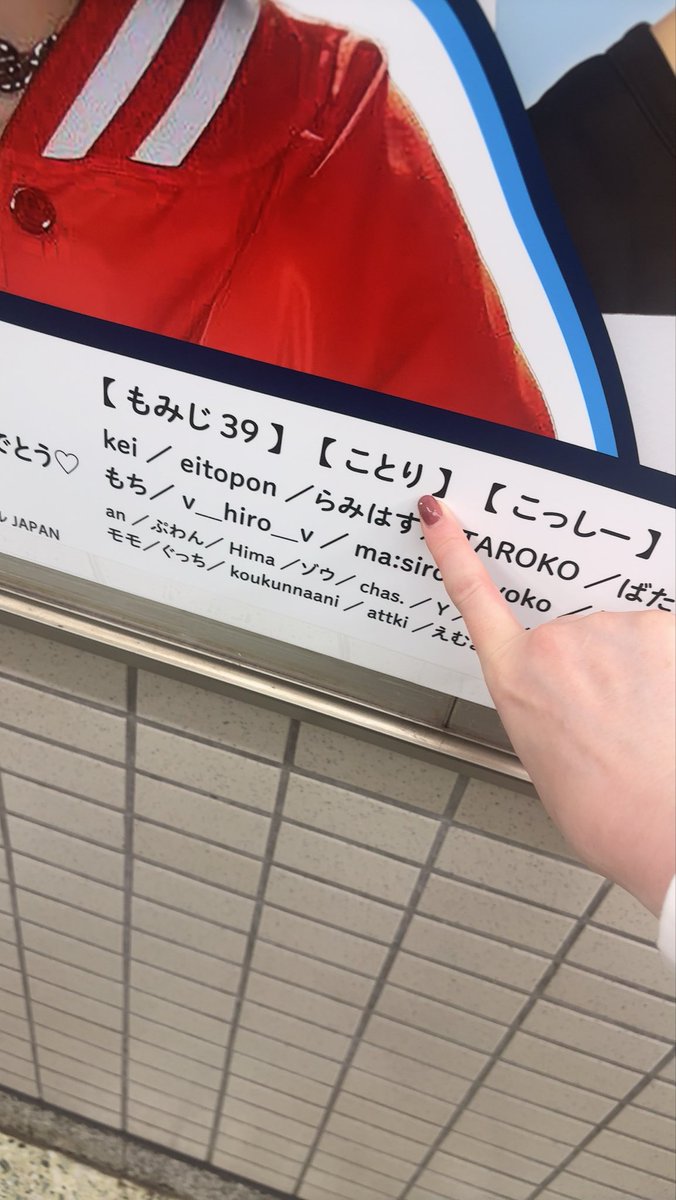 【もみじ39】【ことり】【こっしー】
でとう♡
kei／eitopon／らみはす TAROKO／ばた
もち／v__hiro__v／ma:siro yoko／
JAPAN
an／ぷわん／Hima／ゾウ／chas.／Y／
モモ／ぐっち／koukunnaani／attki／えむ